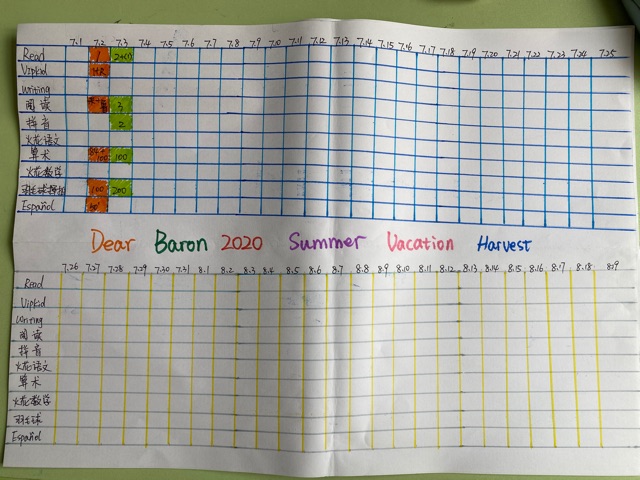 7.1 7.2 7.3 7.4 7.5 7.6 7.7 7.8 7.9 7.10 7.11 7.12 7.13 7.14 7.15 7.16 7.17 7.18 7.19 7.20 7.21 7.22 7.23 7.24 7.25
Read 1
Vipkid
Writing
阅读 3
抖音 2
火花语文
算术 100
火花数学
羽毛球 100 200
Español
Dear Baron 2020 Summer Vacation Harvest
7.26 7.27 7.28 7.29 7.30 7.31 8.1 8.2 8.3 8.4 8.5 8.6 8.7 8.8 8.9 8.10 8.11 8.12 8.13 8.14 8.15 8.16 8.17 8.18
Read
Vipkid
Writing
阅读
抖音
火花语文
算术
火花数学
羽毛球
Español